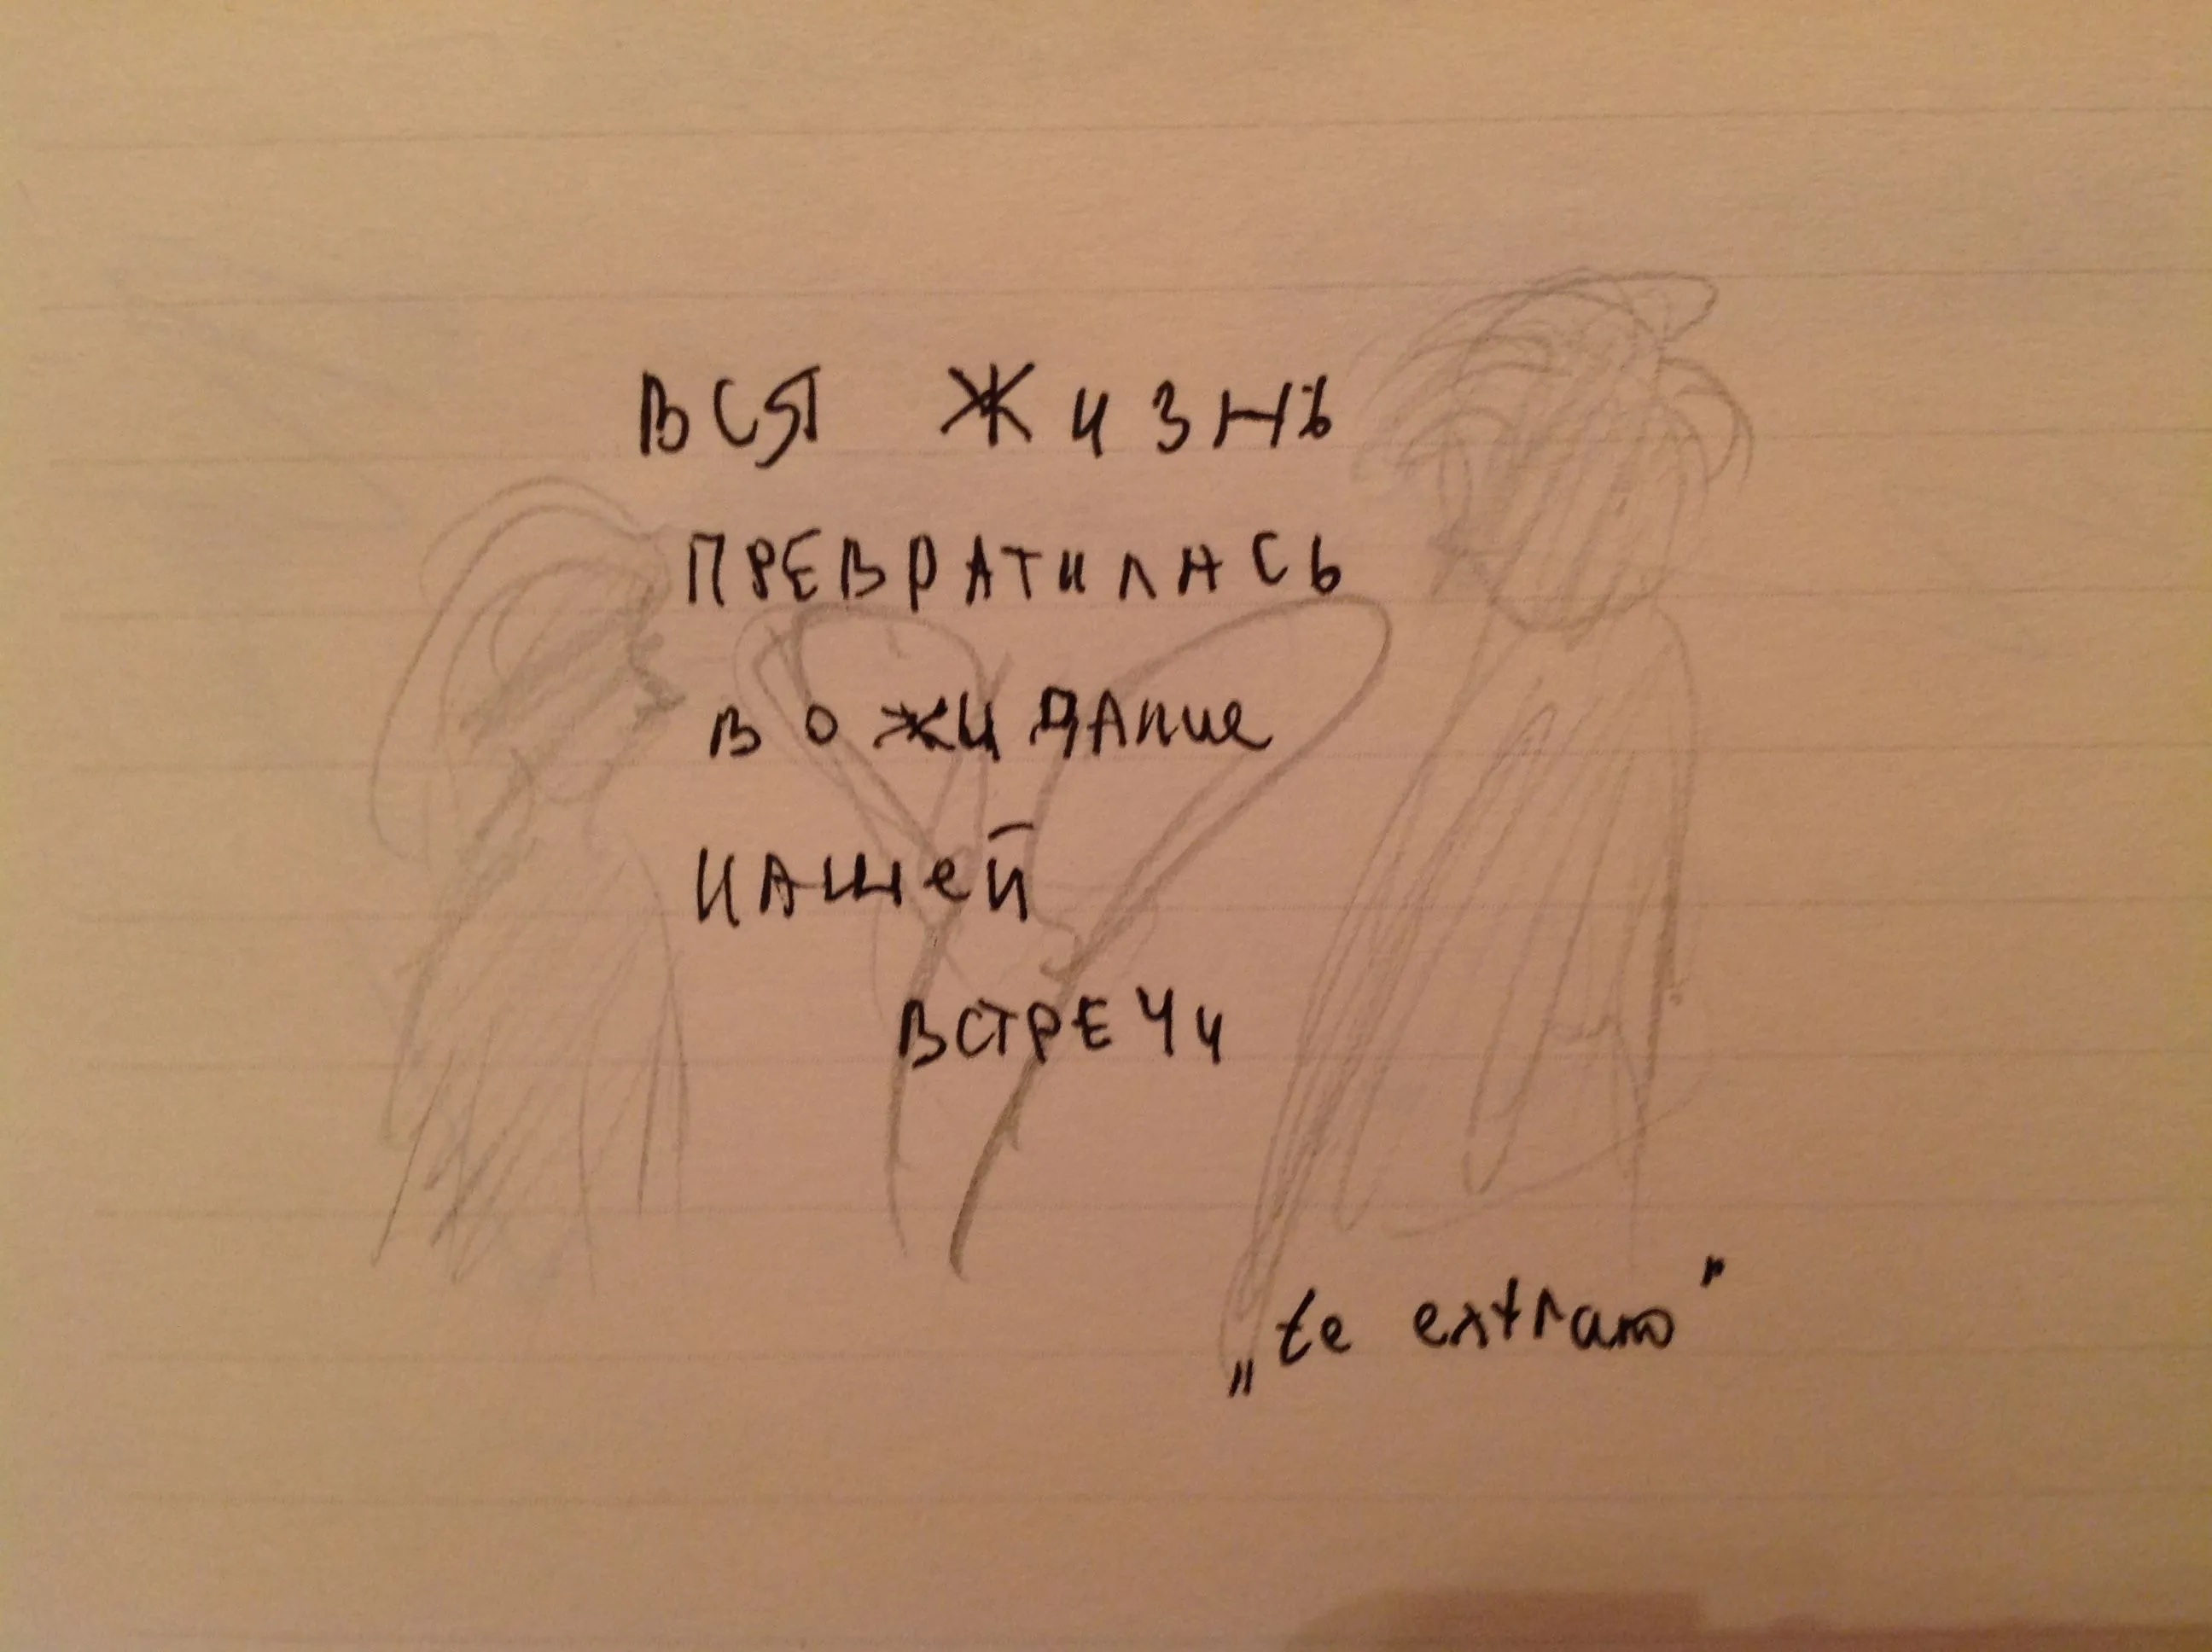 ВСЯ ЖИЗНЬ
ПРЕВРАТИЛАСЬ
В ОЖИДАНИЕ
НАШЕЙ
ВСТРЕЧИ
„te extraño”